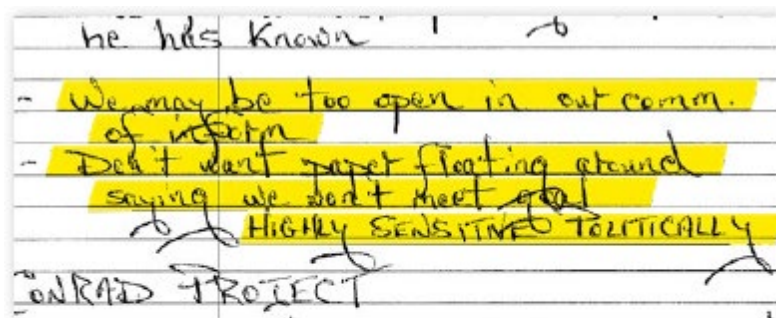 he has Known
- We may be too open in our comm.
of inform
- Don't want paper floating around
saying we won't meet goal
HIGHLY SENSITIVE POLITICALLY
ONRAD PROJECT